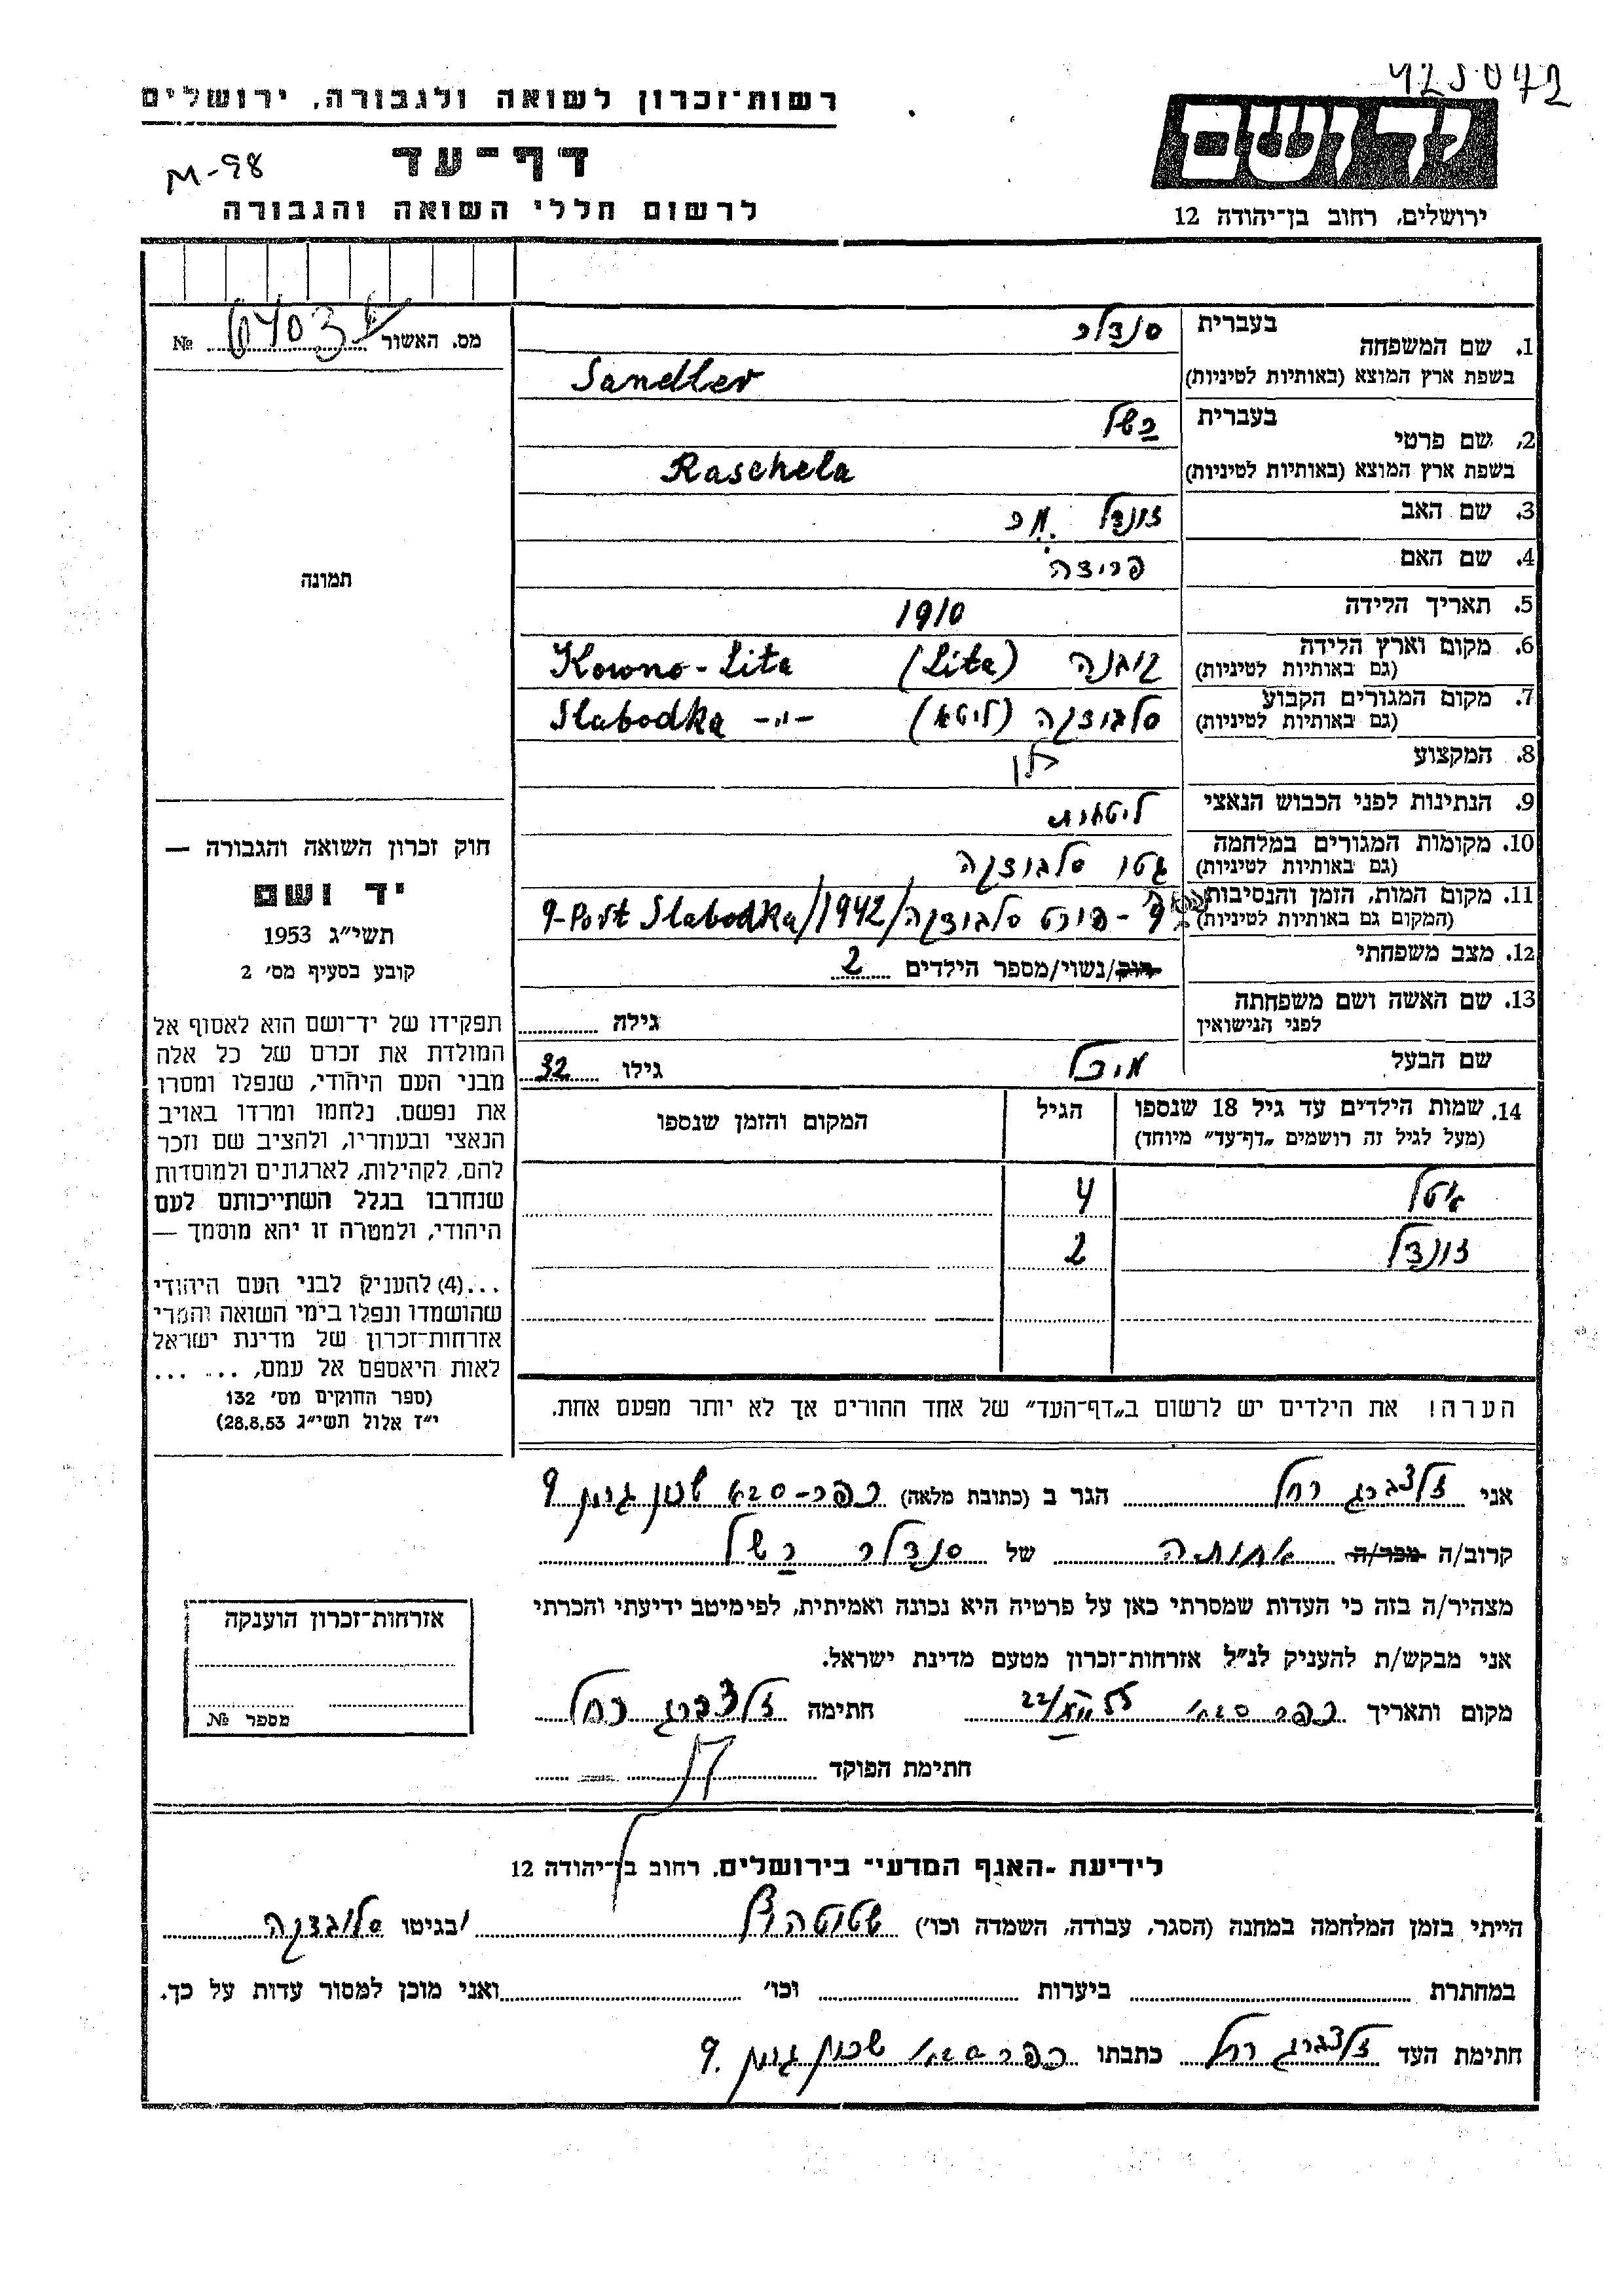 425072
רשות־זכרון לשואה ולגבורה, ירושלים
יד ושם
דף־עד
M-98
לרשום חללי השואה והגבורה
ירושלים, רחוב בן־יהודה 12
מס. האשור № 
1. שם המשפחה בעברית סנדלר
בשפת ארץ המוצא (באותיות לטיניות) Sandler
2. שם פרטי בעברית רשל
בשפת ארץ המוצא (באותיות לטיניות) Raschela
3. שם האב זונדל
4. שם האם
5. תאריך הלידה 1910
6. מקום וארץ הלידה קובנה (Lita) Kowno - Lita
(גם באותיות לטיניות)
7. מקום המגורים הקבוע סלבודקה (ליטא) Slabodka -"-
(גם באותיות לטיניות)
8. המקצוע
9. הנתינות לפני הכבוש הנאצי ליטאית
10. מקומות המגורים במלחמה גטו סלבודקה
(גם באותיות לטיניות)
11. מקום המות, הזמן והנסיבות 9 - פורט סלבודקה /1942/ 9-Port Slabodka
(המקום גם באותיות לטיניות)
12. מצב משפחתי רוק/נשוי/מספר הילדים 2
13. שם האשה ושם משפחתה גילה
לפני הנישואין
שם הבעל מיכל גילו 32
תמונה
חוק זכרון השואה והגבורה —
יד ושם
תשי״ג 1953
קובע בסעיף מס׳ 2
תפקידו של יד־ושם הוא לאסוף אל
המולדת את זכרם של כל אלה
מבני העם היהודי, שנפלו ומסרו
את נפשם, נלחמו ומרדו באויב
הנאצי ובעוזריו, ולהציב שם וזכר
להם, לקהילות, לארגונים ולמוסדות
שנחרבו בגלל השתייכותם לעם
היהודי, ולמטרה זו יהא מוסמך —
...(4) להעניק לבני העם היהודי
שהושמדו ונפלו בימי השואה והמרי
אזרחות־זכרון של מדינת ישראל
לאות היאספם אל עמם, ... ...
(ספר החוקים מס׳ 132
י״ז אלול תשי״ג 28.8.53)
14. שמות הילדים עד גיל 18 שנספו הגיל המקום והזמן שנספו
(מעל לגיל זה רושמים „דף־עד״ מיוחד)
איטל 4
זונדל 2
הערה! את הילדים יש לרשום ב„דף־העד״ של אחד ההורים אך לא יותר מפעם אחת.
אני זלצברג רחל הגר ב (כתובת מלאה) כפר-סבא שכון 9
קרוב/ה מכר/ה אחותה של סנדלר רשל
מצהיר/ה בזה כי העדות שמסרתי כאן על פרטיה היא נכונה ואמיתית, לפי מיטב ידיעתי והכרתי
אני מבקש/ת להעניק לנ״ל אזרחות־זכרון מטעם מדינת ישראל.
מקום ותאריך כפר סבא חתימה זלצברג רחל
חתימת הפוקד
אזרחות־זכרון הוענקה
מספר №
לידיעת ״האגף המדעי״ בירושלים, רחוב בן־יהודה 12
הייתי בזמן המלחמה במחנה (הסגר, עבודה, השמדה וכו׳) שטוטהוף /בגיטו סלובדקה
במחתרת ביערות וכו׳ ואני מוכן למסור עדות על כך.
חתימת העד זלצברג רחל כתבתו כפר סבא שכון 9.